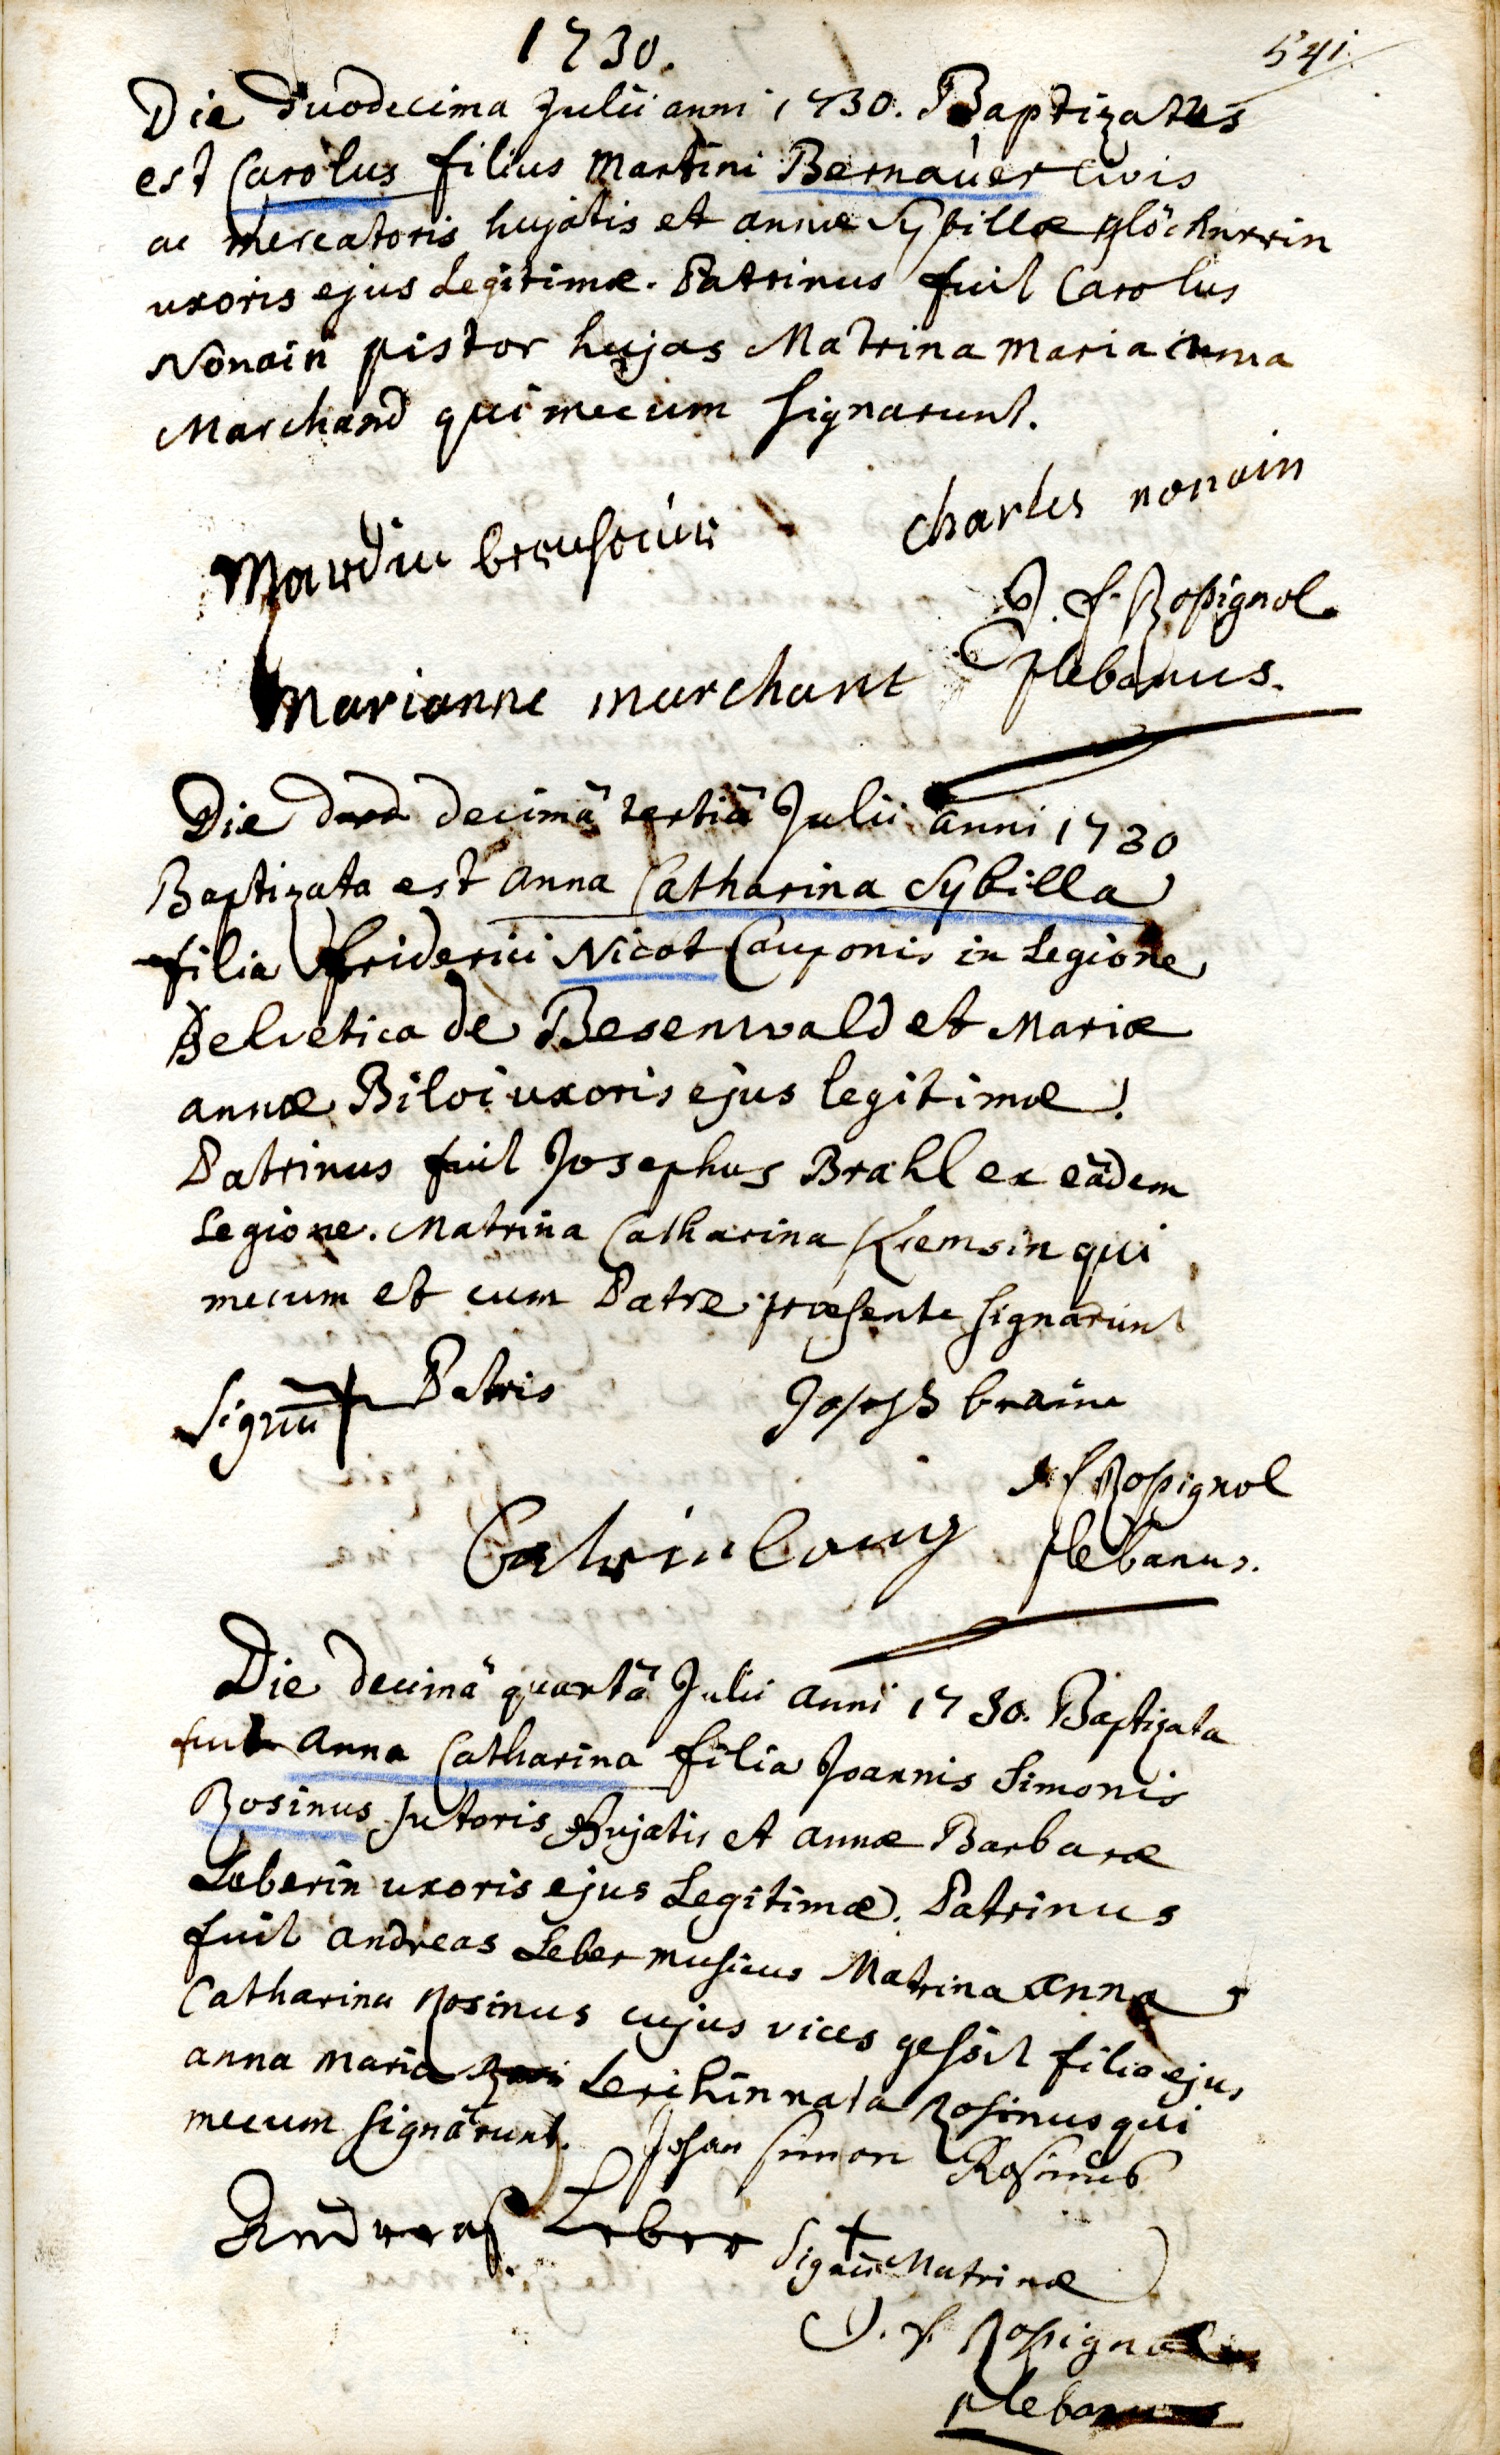 1730.
541.
Die duodecima Julii anni 1730. Baptizatus
est Carolus filius Martini Bernauer civis
ac mercatoris hujatis et annæ Sybillæ glöcknerin
uxoris ejus Legitimæ. Patrinus fuit Carolus
Nonain pistor hujas Matrina Maria anna
Marchand qui mecum signarunt.
charles nonain
Martin
J. f. Roßignol
Marianne marchant plebanus.
Die decimâ tertiâ Julii anni 1730
Baptizata est anna Catharina Sybilla
filia friderici Nicot Cauponis in Legione
Helvetica de Besenwald et Mariæ
annæ Biloi uxoris ejus legitimæ.
Patrinus fuit Josephus Brahl ex eâdem
Legione. Matrina Catharina Kremsin qui
mecum et cum Patre præsente signarunt
Signū + Patris
Joseph braine
J f Roßignol
Catrin
plebanus.
Die decimâ quartâ Julii anni 1730. Baptizata
fuit anna Catharina filia Joannis Simonis
Rosinus sutoris hujatis et annæ Barbaræ
Leberin uxoris ejus Legitimæ. Patrinus
fuit andreas Leber musicus Matrina anna
Catharina Rosinus cujus vices gessit filia ejus
anna maria Lerchin nata Rosinus qui
mecum signârunt. Johan simon Rosinus
Andreas Leber
Signū + Matrinæ
J. f. Roßignol
plebanus